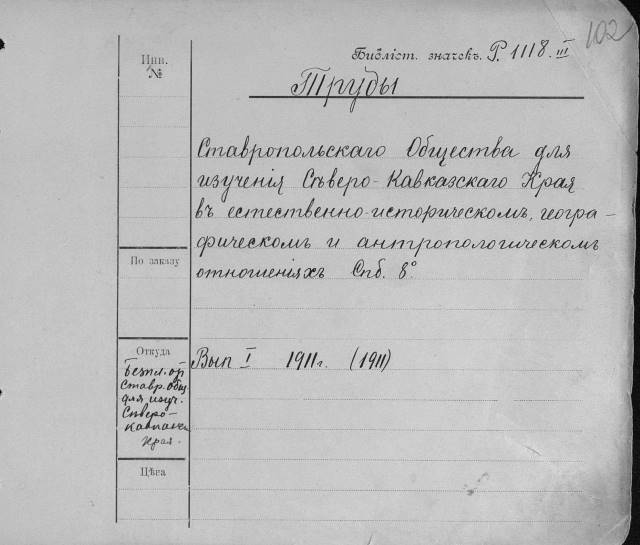 102
Инв.
№
Библіот. значекъ. Р. 1118. III
Труды
Ставропольскаго Общества для
изученія Сѣверо-Кавказскаго Края
въ естественно-историческомъ, геогра-
фическомъ и антропологическомъ
отношеніяхъ Спб. 8°
По заказу
Откуда
Безпл. от
Ставр. Общ.
для изуч.
Сѣверо-
Кавказск
Края.
Вып I 1911г. (1911)
Цѣна